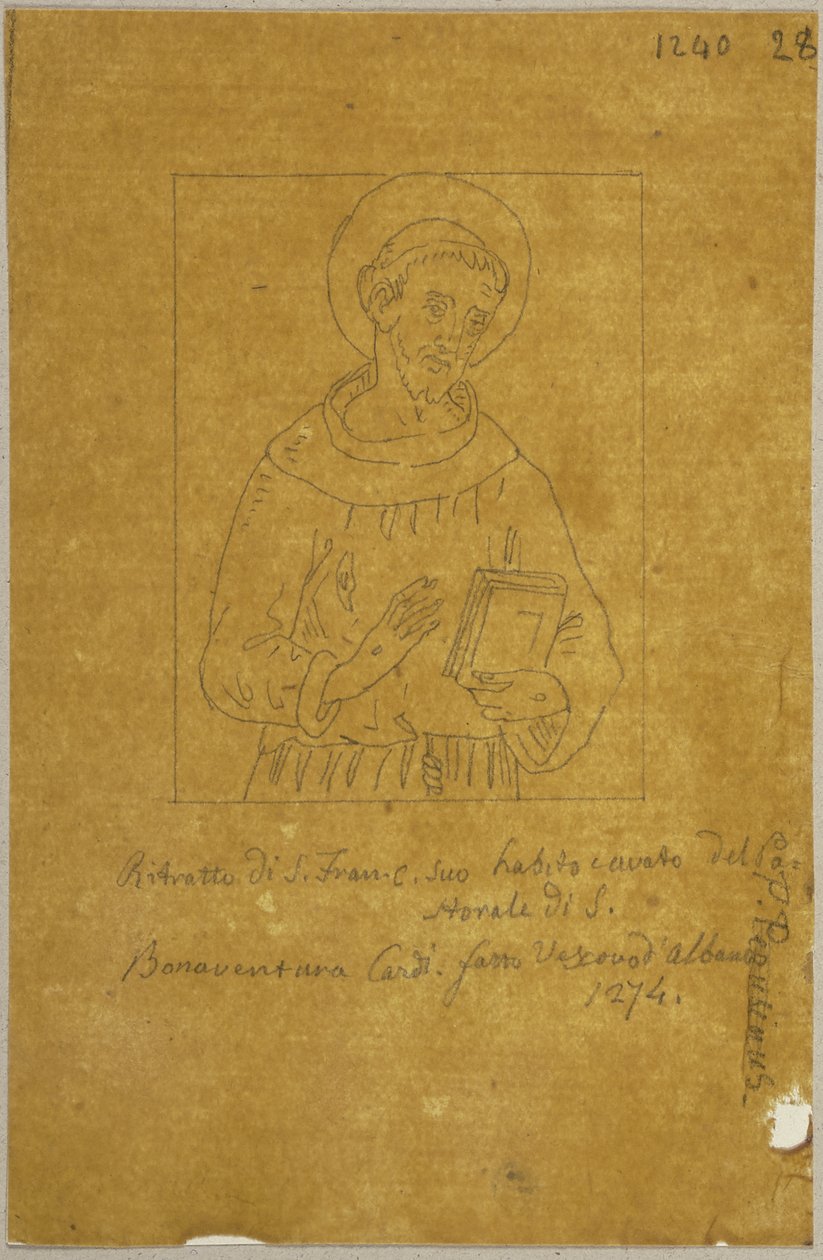 1240 28
Ritratto di S. Franc. suo habito cavato del Pa=
storale di S.
Bonaventura Cardi. fatto Vescovo d'Albano
1274.